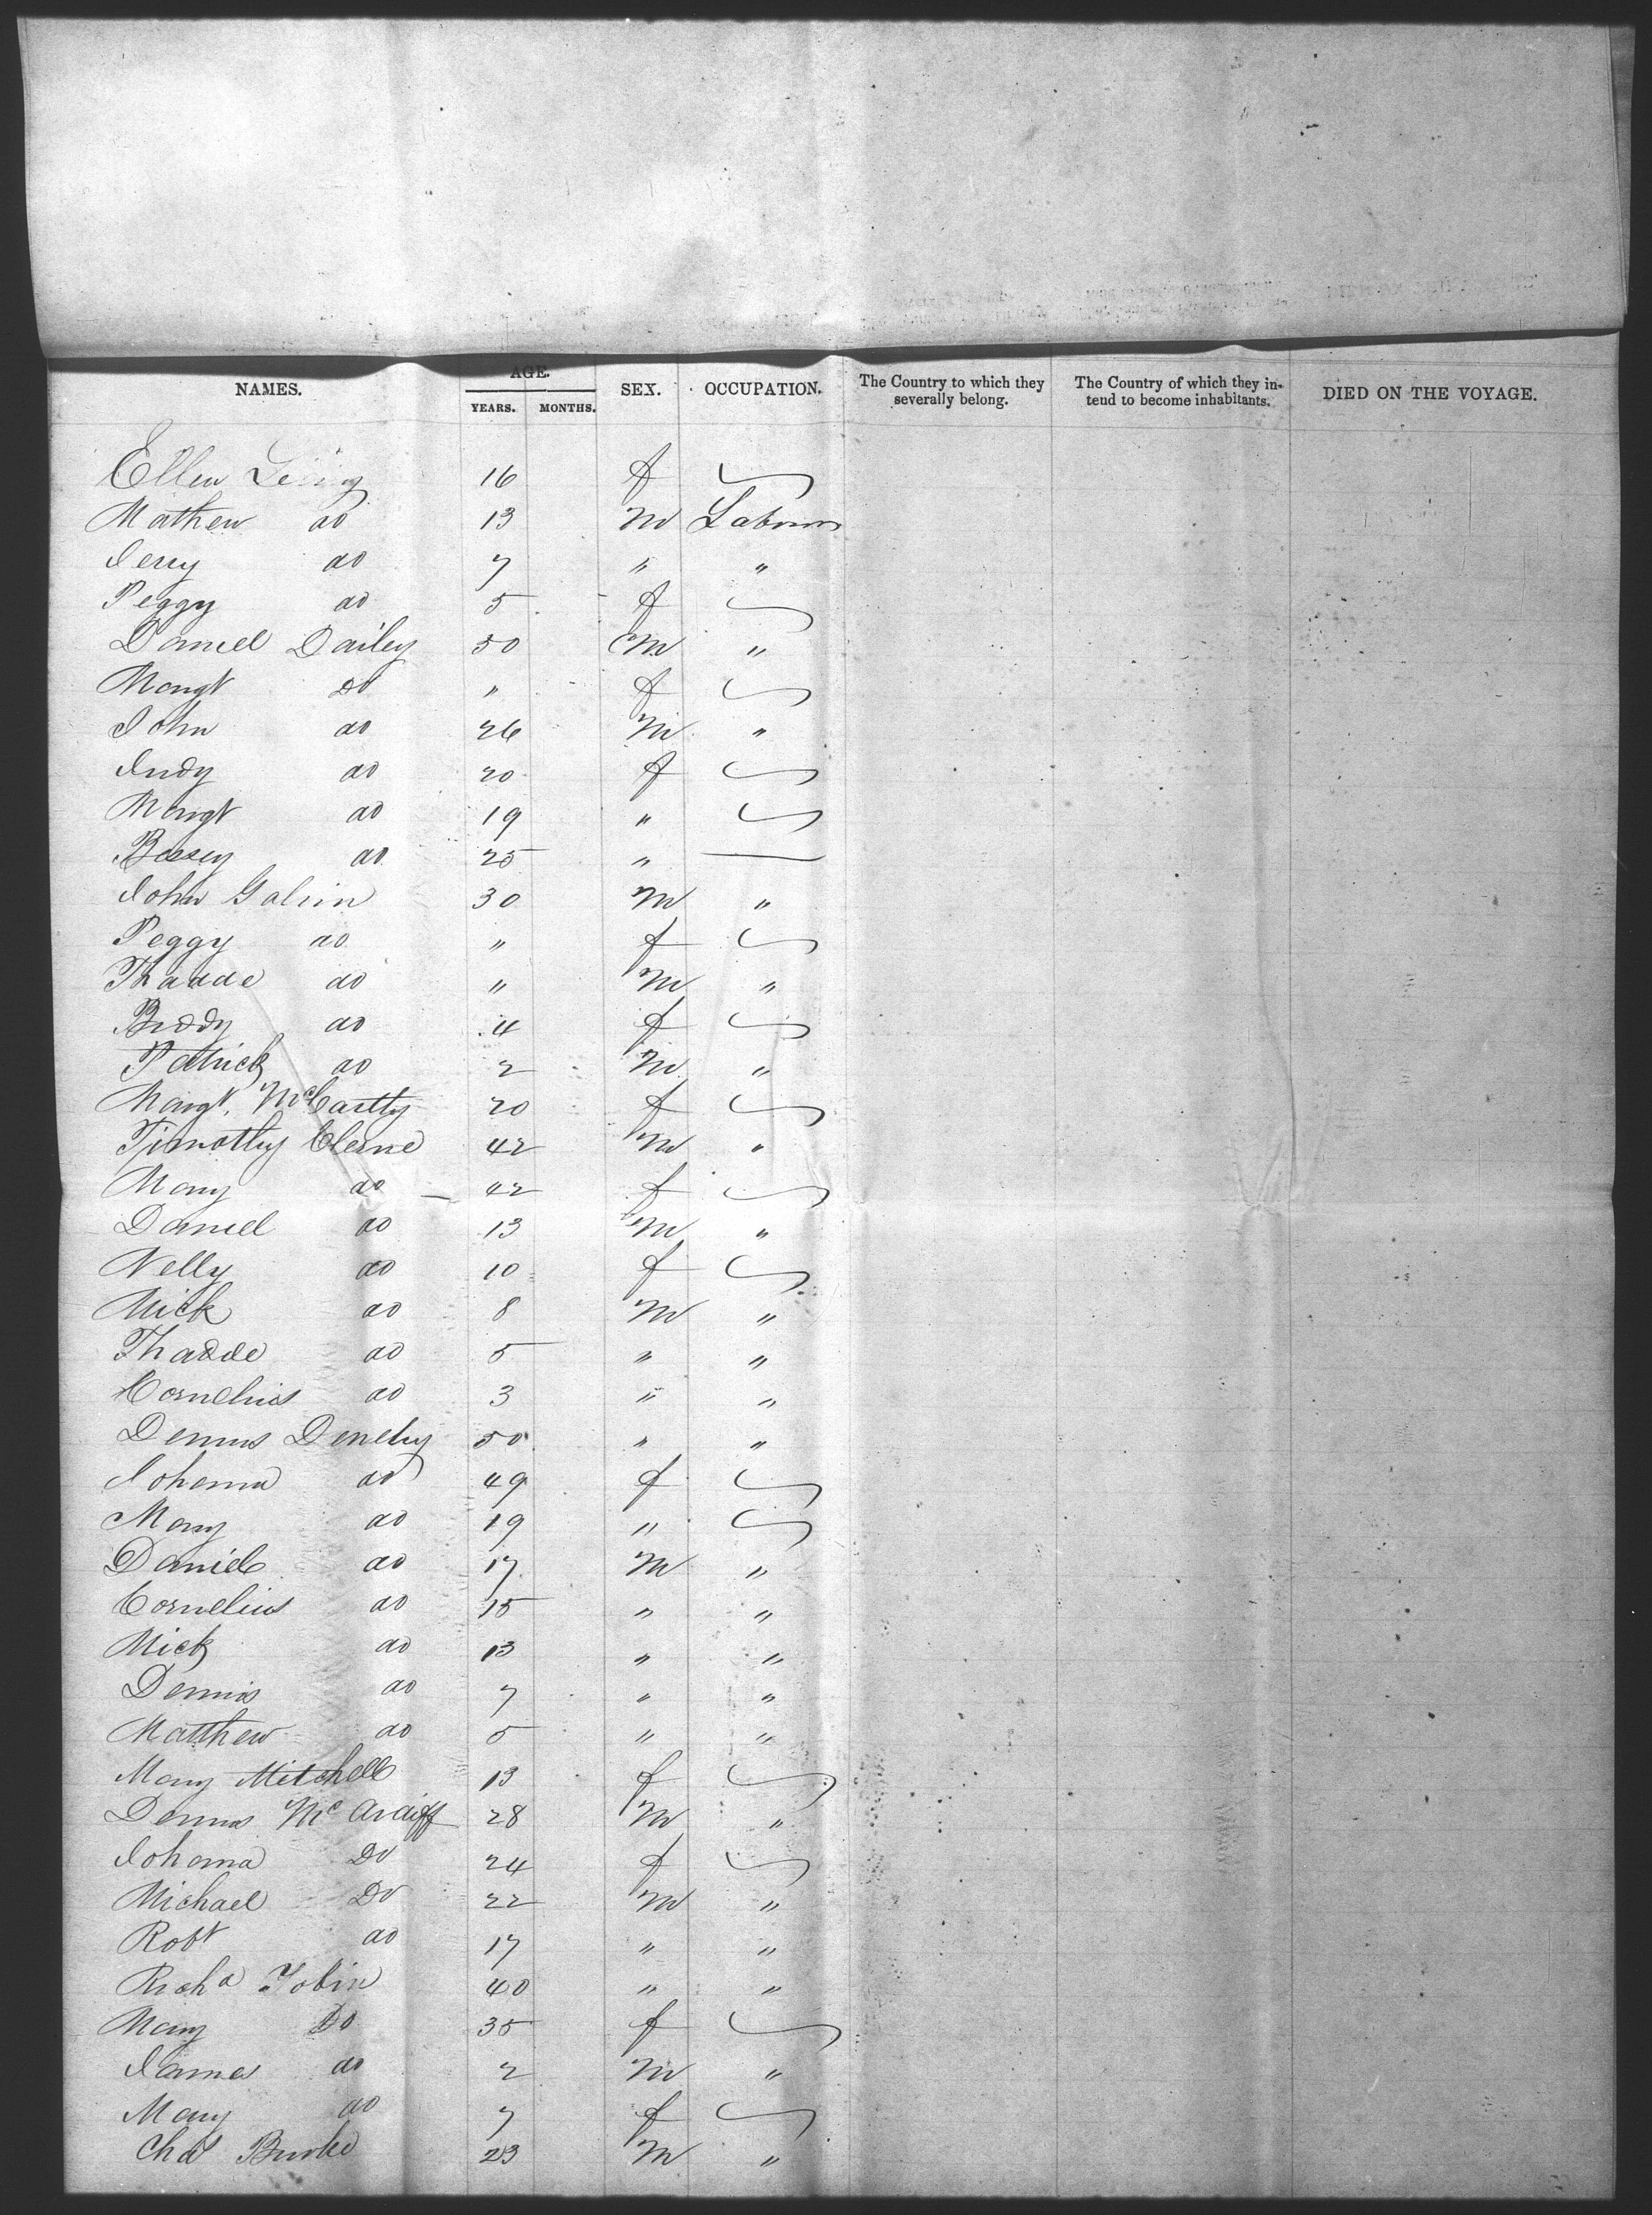 NAMES. AGE. SEX. OCCUPATION. The Country to which they severally belong. The Country of which they intend to become inhabitants. DIED ON THE VOYAGE.
YEARS. MONTHS.
Ellen 16 f
Mathew do 13 M Labourer
Jerry do 7 " "
Peggy do 5 f
Daniel Dailey 50 M "
Margt Do " f
John do 26 M "
Judy do 20 f
Margt do 19 "
Bessey do 25 " —
John Galvin 30 M "
Peggy do " f
Thadde do " M "
Biddy do 4 f
Patrick do 2 M "
Margt. McCartty 20 f
Timothy 42 M "
Mary do 42 f
Daniel do 13 M "
Nelly do 10 f
Mick do 8 M "
Thadde do 5 " "
Cornelius do 3 " "
Dennis Denehy 50 " "
Johanna do 49 f
Mary do 19 "
Daniel do 17 M "
Cornelius do 15 " "
Mick do 13 " "
Dennis do 7 " "
Matthew do 5 " "
Mary Mitchell 13 f
Dennis 28 M "
Johanna Do 24 f
Michael Do 22 M "
Robt do 17 " "
Richd Tobin 40 " "
Mary Do 35 f
James do 2 M "
Mary do 7 f
Chas Burke 23 M "